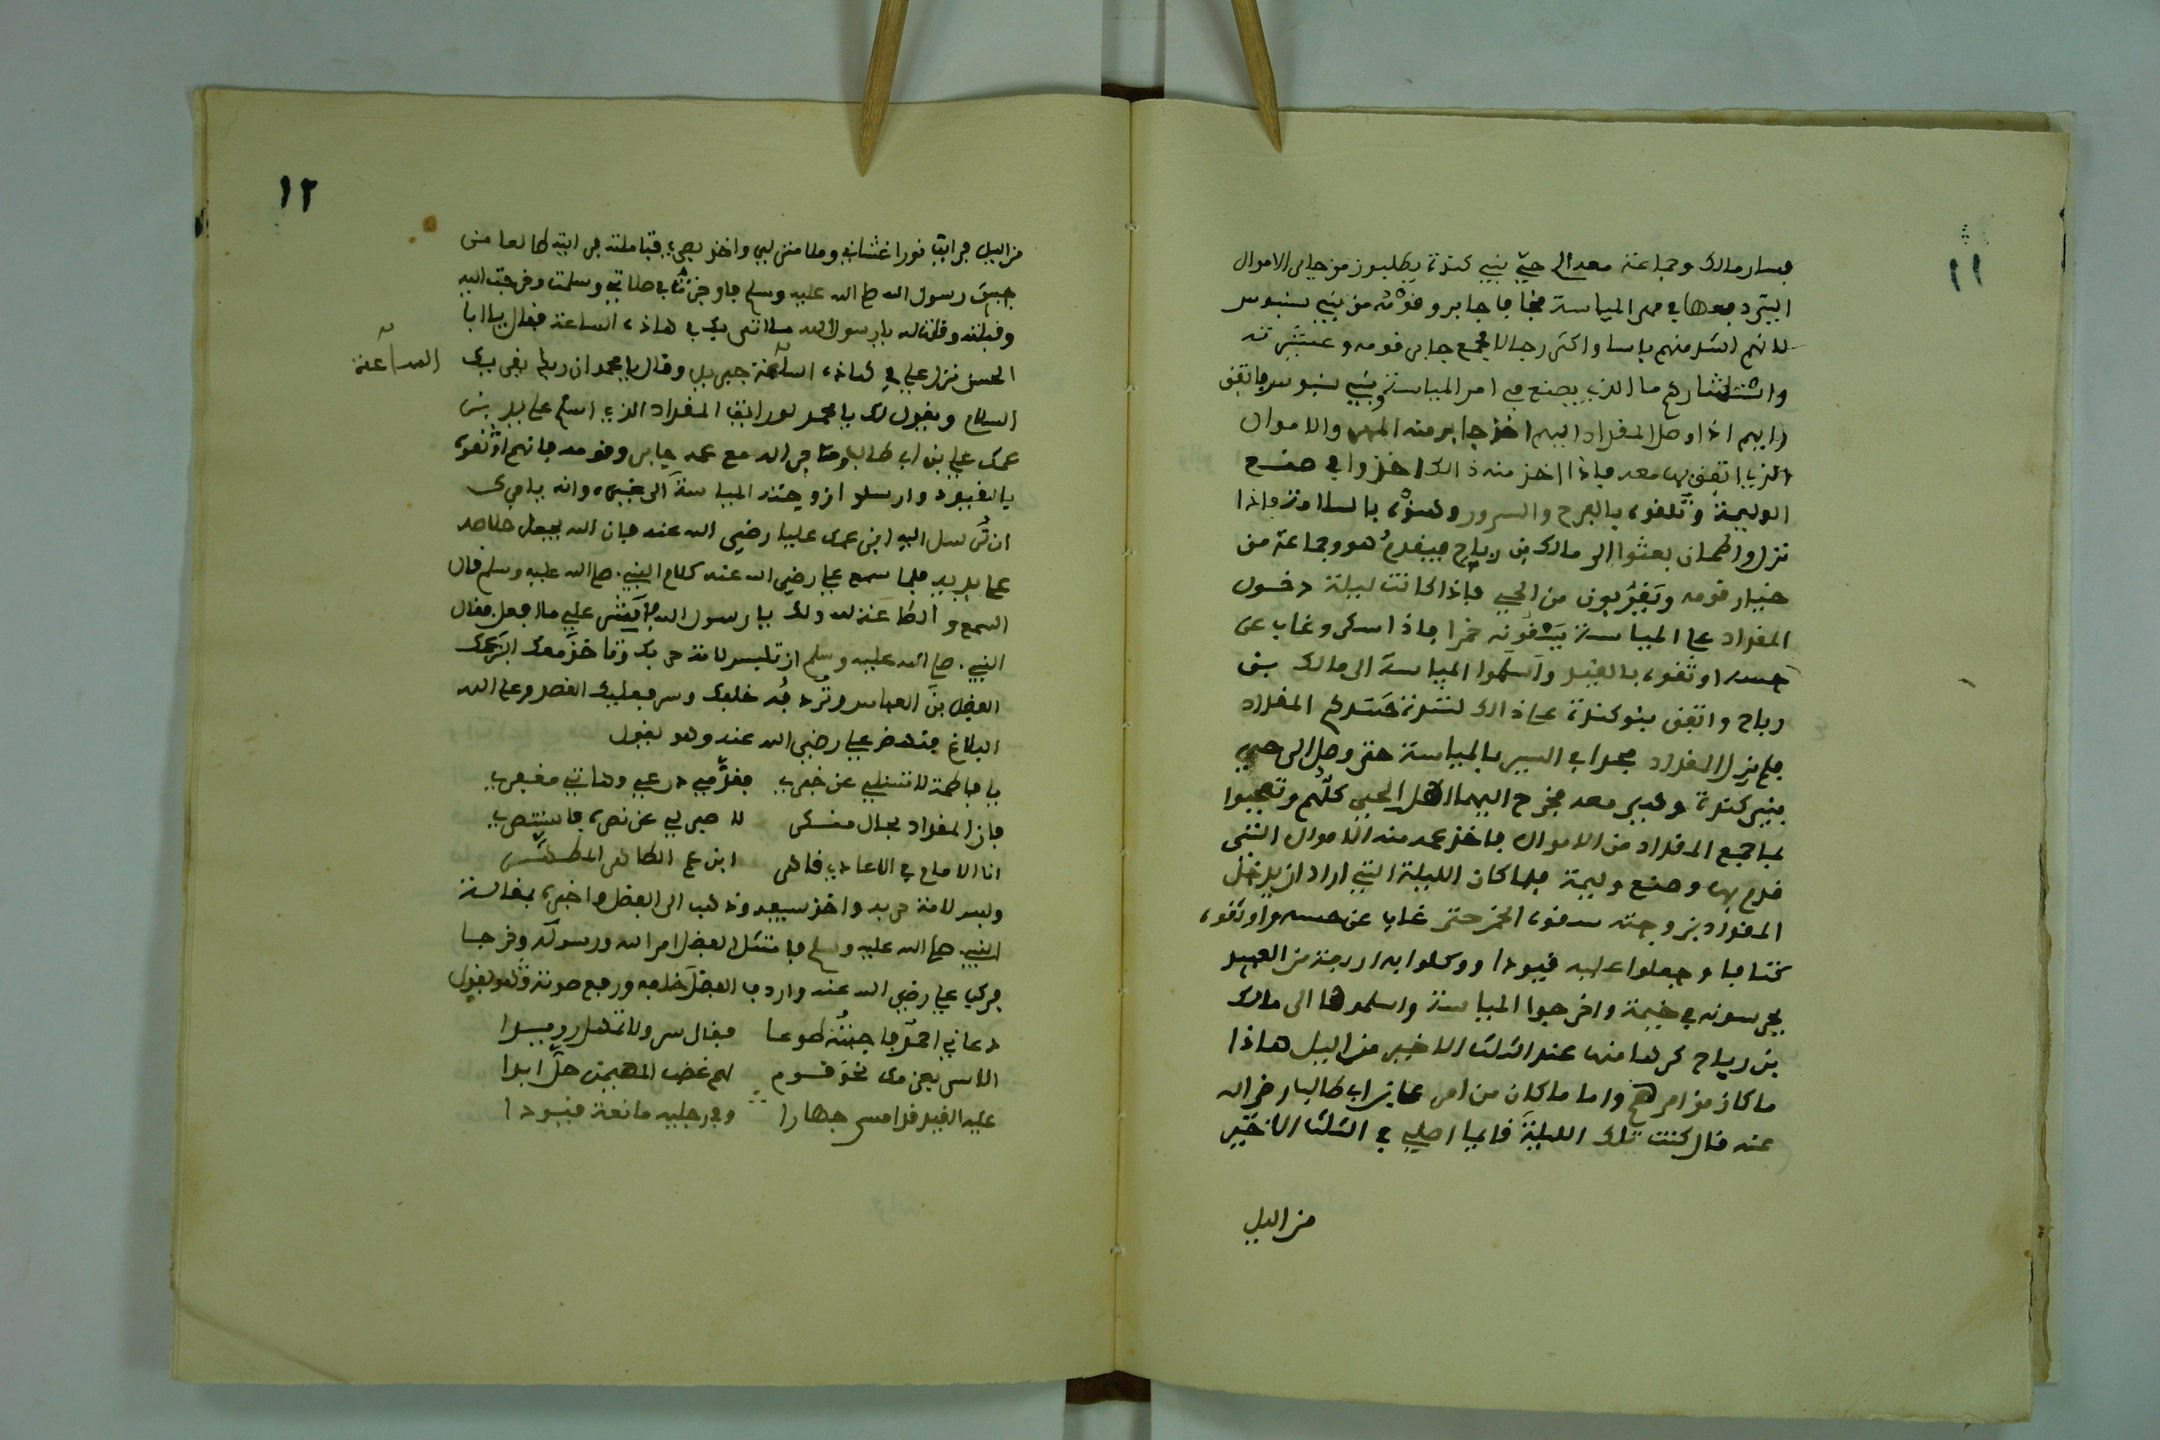 ١١
فسار مالك وجماعة معه الى حيّ بني كندة يطلبون من جابر الاموال
التي دفعها في مهر المياسة فخاف جابر وقومُه من بني
لانهم اشد منهم باسا واكثر رجالا فجمع جابر قومه وعشيرته
واستشارهم ما الذي يصنع في امر المياسة وبني فاتفق
رايهم اذا وصل المقداد اليهم اخذ جابر منه المهر والاموال
الذي اتفق بها معه فاذا اخذ منه ذالك اخذوا في صنع
الوليمة وتلقوه بالفرح والسرور بالسلامة واذا
نزل واطمان بعثوا الى مالك بن رياح فيقدمُ هو وجماعة من
خيار قومه ويَقرُبون من الحي فاذا كانت ليلة دخول
المقداد على المياسة يَسْقُونه خمرا فاذا سكر وغاب عن
حسه اوثقوه بالقيد واسلموا المياسة الى مالك بن
رياح واتفق بنو كندة على ذالك لشدة حَسَدهم المقداد
فلم يزل المقداد مجدا في السير بالمياسة حتى وصل الى حي
بني كندة معه فخرج اليهما اهل الحي كلُّهم وتعجبوا
لما جمع المقداد من الاموال فاخذ عمه منه الاموال التي
قدم بها وصنع وليمة فلما كان الليلة التي اراد ان يدخل
المقداد بزوجته سقوه الخمر حتى غاب عن حسه واوثقوه
كتافا وجعلوا عليه قيودا ووكلوا به اربعة من العبيد
يحرسونه في خيمة واخرجوا المياسة واسلموها الى مالك
بن رياح كرها منها عند الثلث الاخير من اليل هاذا
ما كان من امرهم واما ما كان من امر علي بن ابي طالب رضي الله
عنه قال كنت تلك الليلةَ قايما اصلي في الثلث الاخير
من اليل
١٢
من اليل فرايت نورا غشاني وملا منزلي واخذ بصري فتاملته فرايته طالعا من
جبين رسول الله صلى الله عليه وسلم فاوجزتُ في صلاتي وسلمت وخرجت اليه
وقبلته وقلت له يا رسول الله ما اتى بك في هاذه الساعة فقال يا ابا
الحسن نزل علي في هاذه الساعة جبريل وقال يا محمد ان ربك يقريك
الساعة
السلام ويقول لك يا محمد لو رايت المقداد الذي اسلم على يد بن
عمك علي بن ابي طالب وما جرى له مع عمه جابر وقومه فانهم اوْثقوه
بالقيود وارسلوا زوجته المياسةَ الى غيره وانه يامرك
ان تُرسل اليه ابن عمك عليا رضي الله عنه فان الله يجعل خلاصه
على يديه فلما سمع علي رضي الله عنه كلام النبي صلى الله عليه وسلم قال
السمع و الطاعة لله ولك يا رسول الله علي ما افعل فقال
النبي صلى الله عليه وسلم ان تلبس لامة حربك وتاخذ معك ابن عمك
الفضل بنَ العباس وتُردِفُه خلفك وسر فعليك القصد وعلى الله
البلاغ فنهض علي رضي الله عنه وهو يقول
يا فاطمة لا تسئلي عن خبري فقرِّبي درعي وهاتي مغفري
فان المقداد بحال منكر لا صبر لي عن نصره فاستنصري
انا الامام في الاعادي قاهر ابن عم الطاهر المطهر
ولبس لامة حربه واخذ سيفه وذهب الى الفضل واخبره بمقالة
النبي صلى الله عليه وسلم فامتثل الفضل امر الله ورسوله وخرجا
فركب علي رضي الله عنه واردف الفضل خلفه ورفع صوته وهو يقول
دعاني احمد فاجبتُه طوعا فقال سر ولا تمهل رويدا
الاسر بعزمك نحو قوم لهم غضب المهيمن حل ابدا
عليه القيد قد امسى جهارا وفي رجليه مانعة قيودا